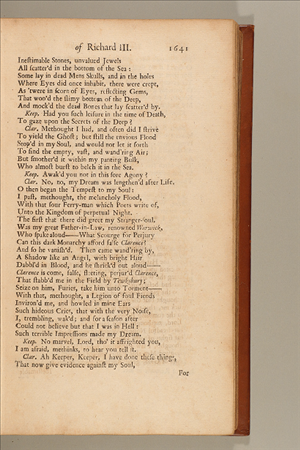 of Richard III. 1641
Inestimable Stones, unvalued Jewels
All scatter'd in the bottom of the Sea:
Some lay in dead Mens Skulls, and in the holes
Where Eyes did once inhabit, there were crept,
As 'twere in scorn of Eyes, reflecting Gems,
That woo'd the slimy bottom of the Deep,
And mock'd the dead Bones that lay scatter'd by.
Keep. Had you such leisure in the time of Death,
To gaze upon the Secrets of the Deep?
Clar. Methought I had, and often did I strive
To yield the Ghost; but still the envious Flood
Stop'd in my Soul, and would not let it forth
To find the empty, vast, and wand'ring Air;
But smother'd it within my panting Bulk,
Who almost burst to belch it in the Sea.
Keep. Awak'd you not in this sore Agony?
Clar. No, no, my Dream was lengthen'd after Life.
O then began the Tempest to my Soul:
I past, methought, the melancholy Flood,
With that sour Ferry-man which Poets write of,
Unto the Kingdom of perpetual Night.
The first that there did greet my Stranger-soul,
Was my great Father-in-Law, renowned Warwick,
Who spake aloud—What Scourge for Perjury
Can this dark Monarchy afford false Clarence?
And so he vanish'd. Then came wand'ring by,
A Shadow like an Angel, with bright Hair
Dabbl'd in Blood, and he shriek'd out aloud—
Clarence is come, false, fleeting, perjur'd Clarence,
That stabb'd me in the Field by Tewksbury;
Seize on him, Furies, take him unto Torment—
With that, methought, a Legion of foul Fiends
Inviron'd me, and howled in mine Ears
Such hideous Cries, that with the very Noise,
I, trembling, wak'd; and for a season after
Could not believe but that I was in Hell:
Such terrible Impressions made my Dream.
Keep. No marvel, Lord, tho' it affrighted you,
I am afraid, methinks, to hear you tell it.
Clar. Ah Keeper, Keeper, I have done these things,
That now give evidence against my Soul,
For